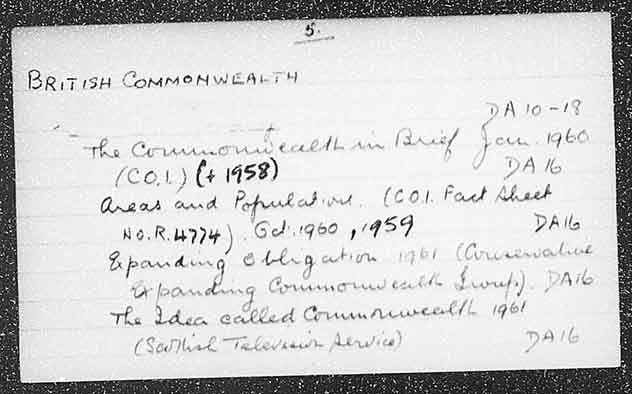 5.
BRITISH COMMONWEALTH
DA 10-18
The Commonwealth in Brief Jan. 1960
(C.O.I.) (+ 1958) DA 16
Areas and Population. (C.O.I. Fact Sheet
No. R. 4774). Oct. 1960, 1959 DA16
Expanding Obligation 1961 (Conservative
Expanding Commonwealth Group). DA16
The Idea called Commonwealth 1961
(Scottish Television Service) DA16